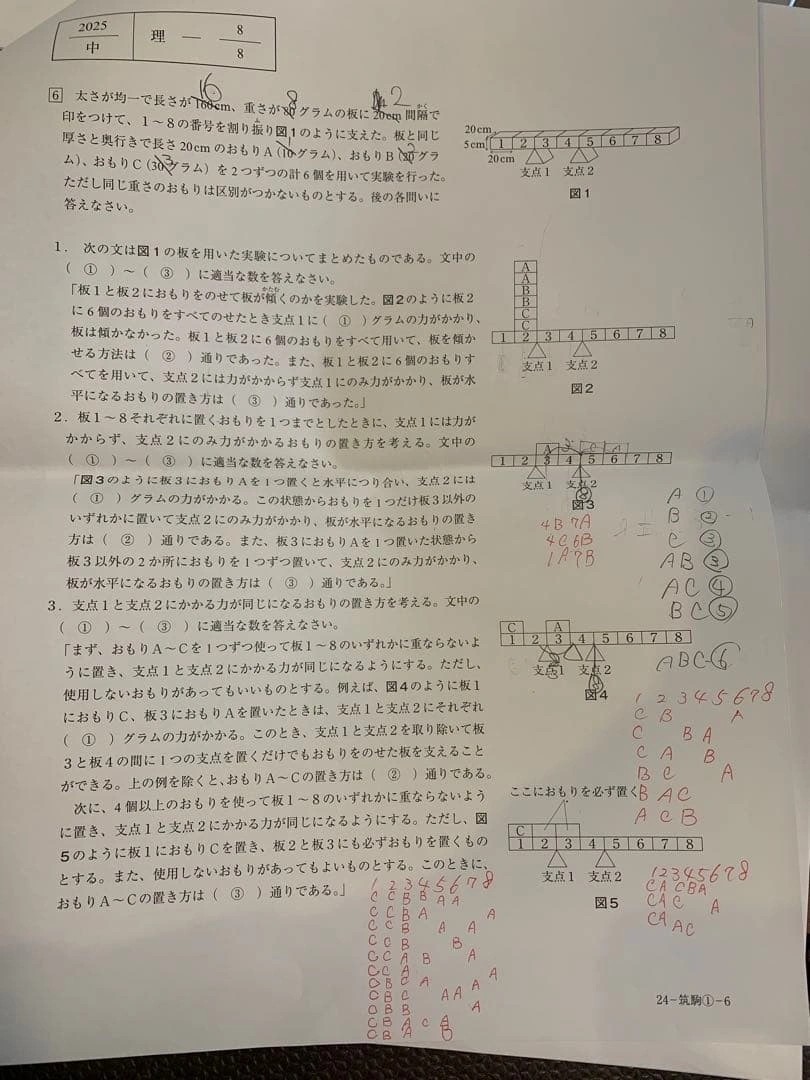 2025
中
理 ― 8/8
6 太さが均一で長さが160cm、重さが80グラムの板に20cm間隔で
16 8 2
印をつけて、1～8の番号を割り振り図1のように支えた。板と同じ
厚さと奥行きで長さ20cmのおもりA(10グラム)、おもりB(20グラ
ム)、おもりC(30グラム)を2つずつの計6個を用いて実験を行った。
ただし同じ重さのおもりは区別がつかないものとする。後の各問いに
答えなさい。
20cm
5cm
1 2 3 4 5 6 7 8
20cm
支点1 支点2
図1
1. 次の文は図1の板を用いた実験についてまとめたものである。文中の
( ① )～( ③ )に適当な数を答えなさい。
「板1と板2におもりをのせて板が傾くのかを実験した。図2のように板2
に6個のおもりをすべてのせたとき支点1に( ① )グラムの力がかかり、
板は傾かなかった。板1と板2に6個のおもりをすべて用いて、板を傾か
せる方法は( ② )通りであった。また、板1と板2に6個のおもりす
べてを用いて、支点2には力がかからず支点1にのみ力がかかり、板が水
平になるおもりの置き方は( ③ )通りであった。」
A
A
B
B
C
C
1 2 3 4 5 6 7 8
支点1 支点2
図2
2. 板1～8それぞれに置くおもりを1つまでとしたときに、支点1には力が
かからず、支点2にのみ力がかかるおもりの置き方を考える。文中の
( ① )～( ③ )に適当な数を答えなさい。
「図3のように板3におもりAを1つ置くと水平につり合い、支点2には
( ① )グラムの力がかかる。この状態からおもりを1つだけ板3以外の
いずれかに置いて支点2にのみ力がかかり、板が水平になるおもりの置き
方は( ② )通りである。また、板3におもりAを1つ置いた状態から
板3以外の2か所におもりを1つずつ置いて、支点2にのみ力がかかり、
板が水平になるおもりの置き方は( ③ )通りである。」
A
1 2 3 4 5 6 7 8
支点1 支点2
図3
4B 7A
4C 6B
1A 7B
A ①
B ②
C ③
AB ③
AC ④
BC ⑤
ABC ⑥
3. 支点1と支点2にかかる力が同じになるおもりの置き方を考える。文中の
( ① )～( ③ )に適当な数を答えなさい。
「まず、おもりA～Cを1つずつ使って板1～8のいずれかに重ならないよ
うに置き、支点1と支点2にかかる力が同じになるようにする。ただし、
使用しないおもりがあってもいいものとする。例えば、図4のように板1
におもりC、板3におもりAを置いたときは、支点1と支点2にそれぞれ
( ① )グラムの力がかかる。このとき、支点1と支点2を取り除いて板
3と板4の間に1つの支点を置くだけでもおもりをのせた板を支えること
ができる。上の例を除くと、おもりA～Cの置き方は( ② )通りである。
次に、4個以上のおもりを使って板1～8のいずれかに重ならないよう
に置き、支点1と支点2にかかる力が同じになるようにする。ただし、図
5のように板1におもりCを置き、板2と板3にも必ずおもりを置くもの
とする。また、使用しないおもりがあってもよいものとする。このときに、
おもりA～Cの置き方は( ③ )通りである。」
C A
1 2 3 4 5 6 7 8
支点1 支点2
図4
1 2 3 4 5 6 7 8
C B A
C B A
C A B
B C A
B A C
A C B
ここにおもりを必ず置く
C
1 2 3 4 5 6 7 8
支点1 支点2
図5
1 2 3 4 5 6 7 8
C A C B A
C A C A
C A A C
1 2 3 4 5 6 7 8
C C B B A A
C C B A A
C C B A A
C C B B
C C A B A
C C A A
C B C A A
C B C A A
C B B A
C B A C A
C B A B
24−筑駒①−6